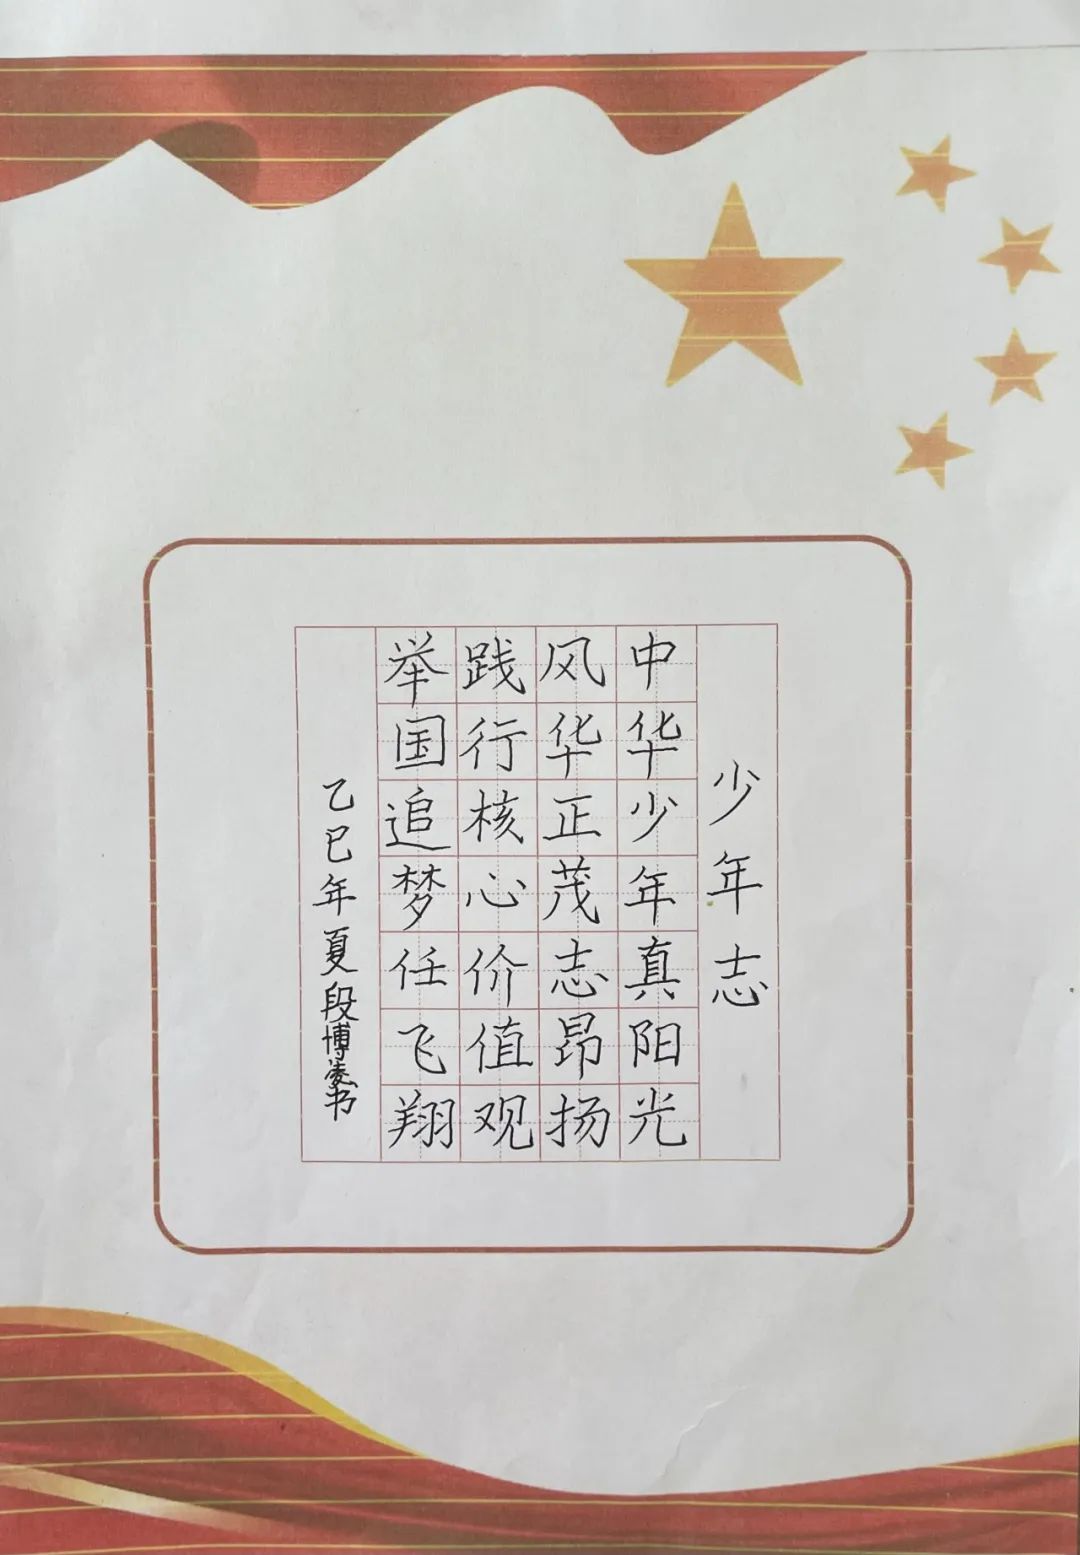 少年志
中华少年真阳光
风华正茂志昂扬
践行核心价值观
举国追梦任飞翔
乙巳年夏段博凌书